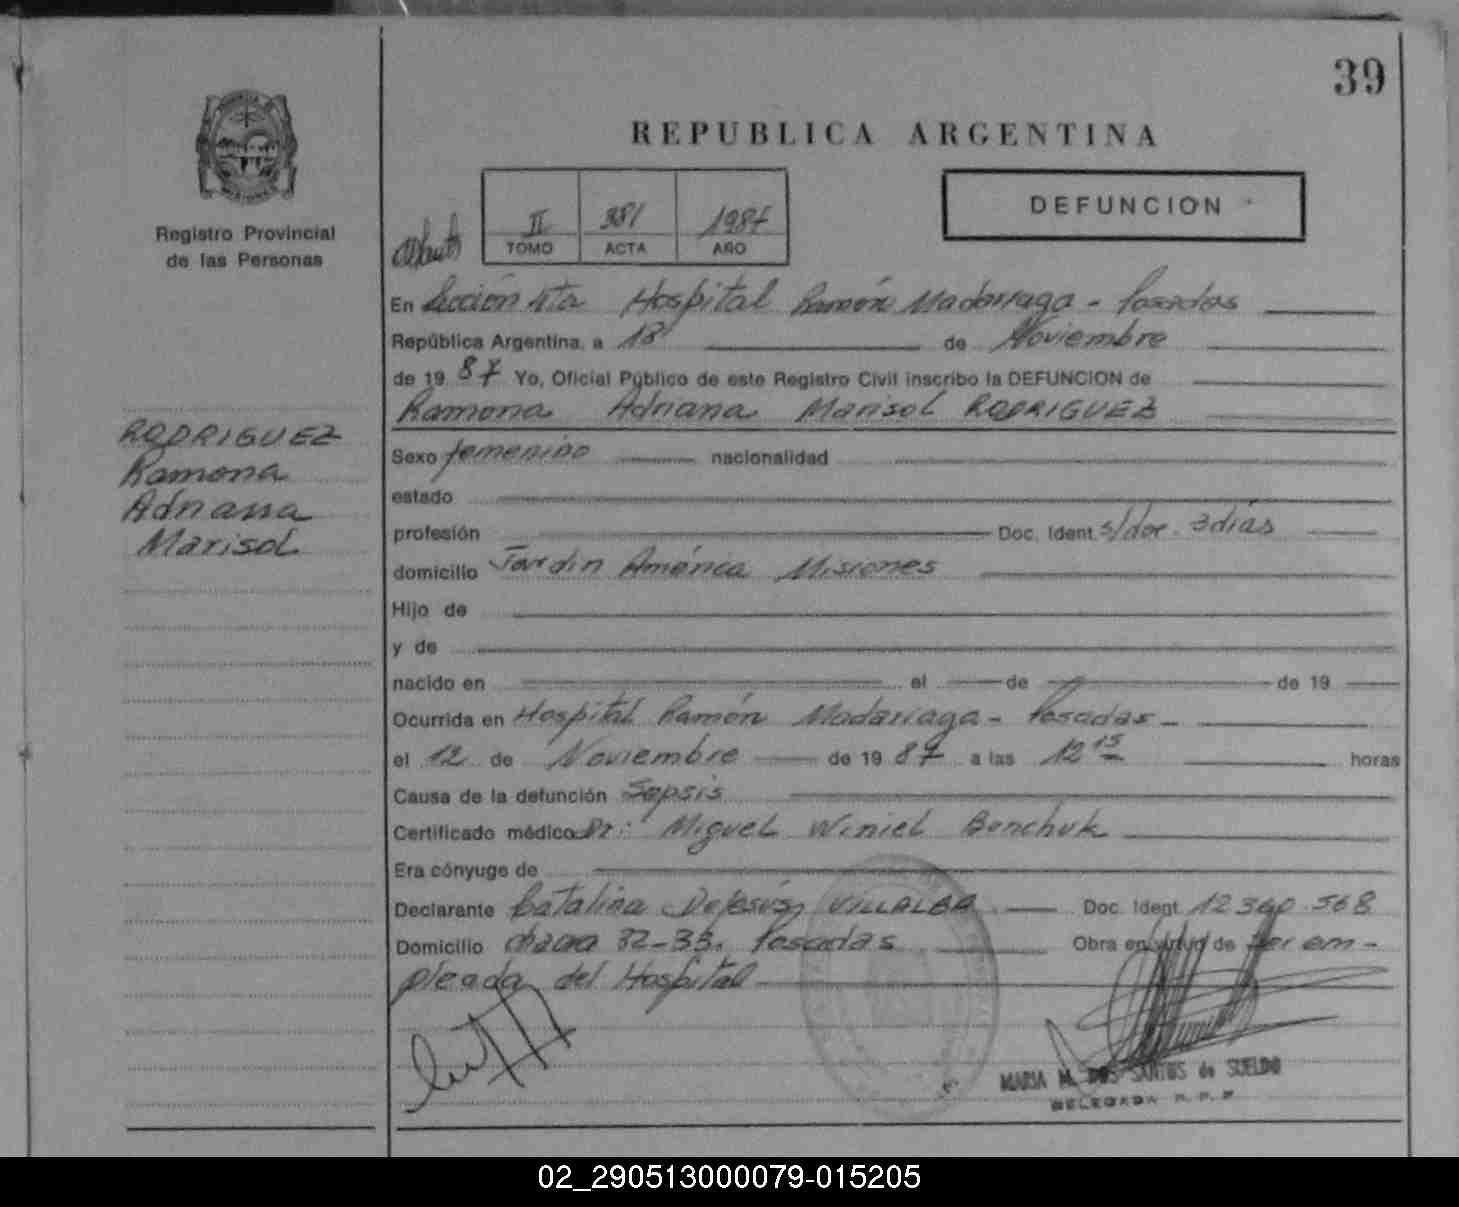 39
REPUBLICA ARGENTINA
Registro Provincial
de las Personas
II 381 1987
TOMO ACTA AÑO
DEFUNCION
En Sección 4ta Hospital Ramón Madariaga - Posadas
República Argentina, a 18 de Noviembre
de 19 87 Yo, Oficial Público de este Registro Civil inscribo la DEFUNCION de
Ramona Adriana Marisol RODRIGUEZ
RODRIGUEZ
Ramona
Adriana
Marisol
Sexo femenino nacionalidad
estado
profesión Doc. Ident. s/doc. 3 días
domicilio Jardin América Misiones
Hijo de
y de
nacido en el de de 19
Ocurrida en Hospital Ramón Madariaga - Posadas -
el 12 de Noviembre de 19 87 a las 12 15 horas
Causa de la defunción Sepsis
Certificado médico Dr: Miguel Winiel Benchuk
Era cónyuge de
Declarante Catalina DeJesús VILLALBA Doc. Ident. 12360568
Domicilio chacra 32-33. Posadas Obra en virtud de ser em-
pleada del Hospital
MARIA M. DOS SANTOS de SUELDO
DELEGADA R. P. P.
02_290513000079-015205